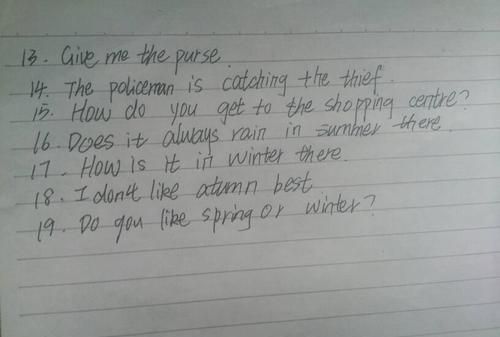 13. Give me the purse.
14. The policeman is catching the thief.
15. How do you get to the shopping centre?
16. Does it always rain in summer there.
17. How is it in winter there.
18. I don't like atumn best
19. Do you like spring or winter?